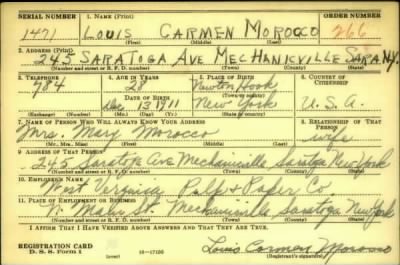 SERIAL NUMBER 1. NAME (Print) ORDER NUMBER
1471 LOUIS CARMEN MOROCCO 266
(First) (Middle) (Last)
2. ADDRESS (Print)
245 SARATOGA AVE MECHANICVILLE SARA N.Y.
(Number and street or R. F. D. number) (Town) (County) (State)
3. TELEPHONE 4. AGE IN YEARS 5. PLACE OF BIRTH 6. COUNTRY OF CITIZENSHIP
784 28 Newton Hook
DATE OF BIRTH (Town or county)
Dec 13 1911 New York U.S.A.
(Exchange) (Number) (Mo.) (Day) (Yr.) (State or country)
7. NAME OF PERSON WHO WILL ALWAYS KNOW YOUR ADDRESS 8. RELATIONSHIP OF THAT PERSON
Mrs. Mary Morocco wife
(Mr., Mrs., Miss) (First) (Middle) (Last)
9. ADDRESS OF THAT PERSON
245 Saratoga Ave Mechanicville Saratoga New York
(Number and street or R. F. D. number) (Town) (County) (State)
10. EMPLOYER'S NAME
West Virginia Pulp & Paper Co
11. PLACE OF EMPLOYMENT OR BUSINESS
N. Main St Mechanicville Saratoga New York
(Number and street or R. F. D. number) (Town) (County) (State)
I AFFIRM THAT I HAVE VERIFIED ABOVE ANSWERS AND THAT THEY ARE TRUE.
REGISTRATION CARD
D. S. S. Form 1 (over) Louis Carmen Morocco
(Registrant's signature)